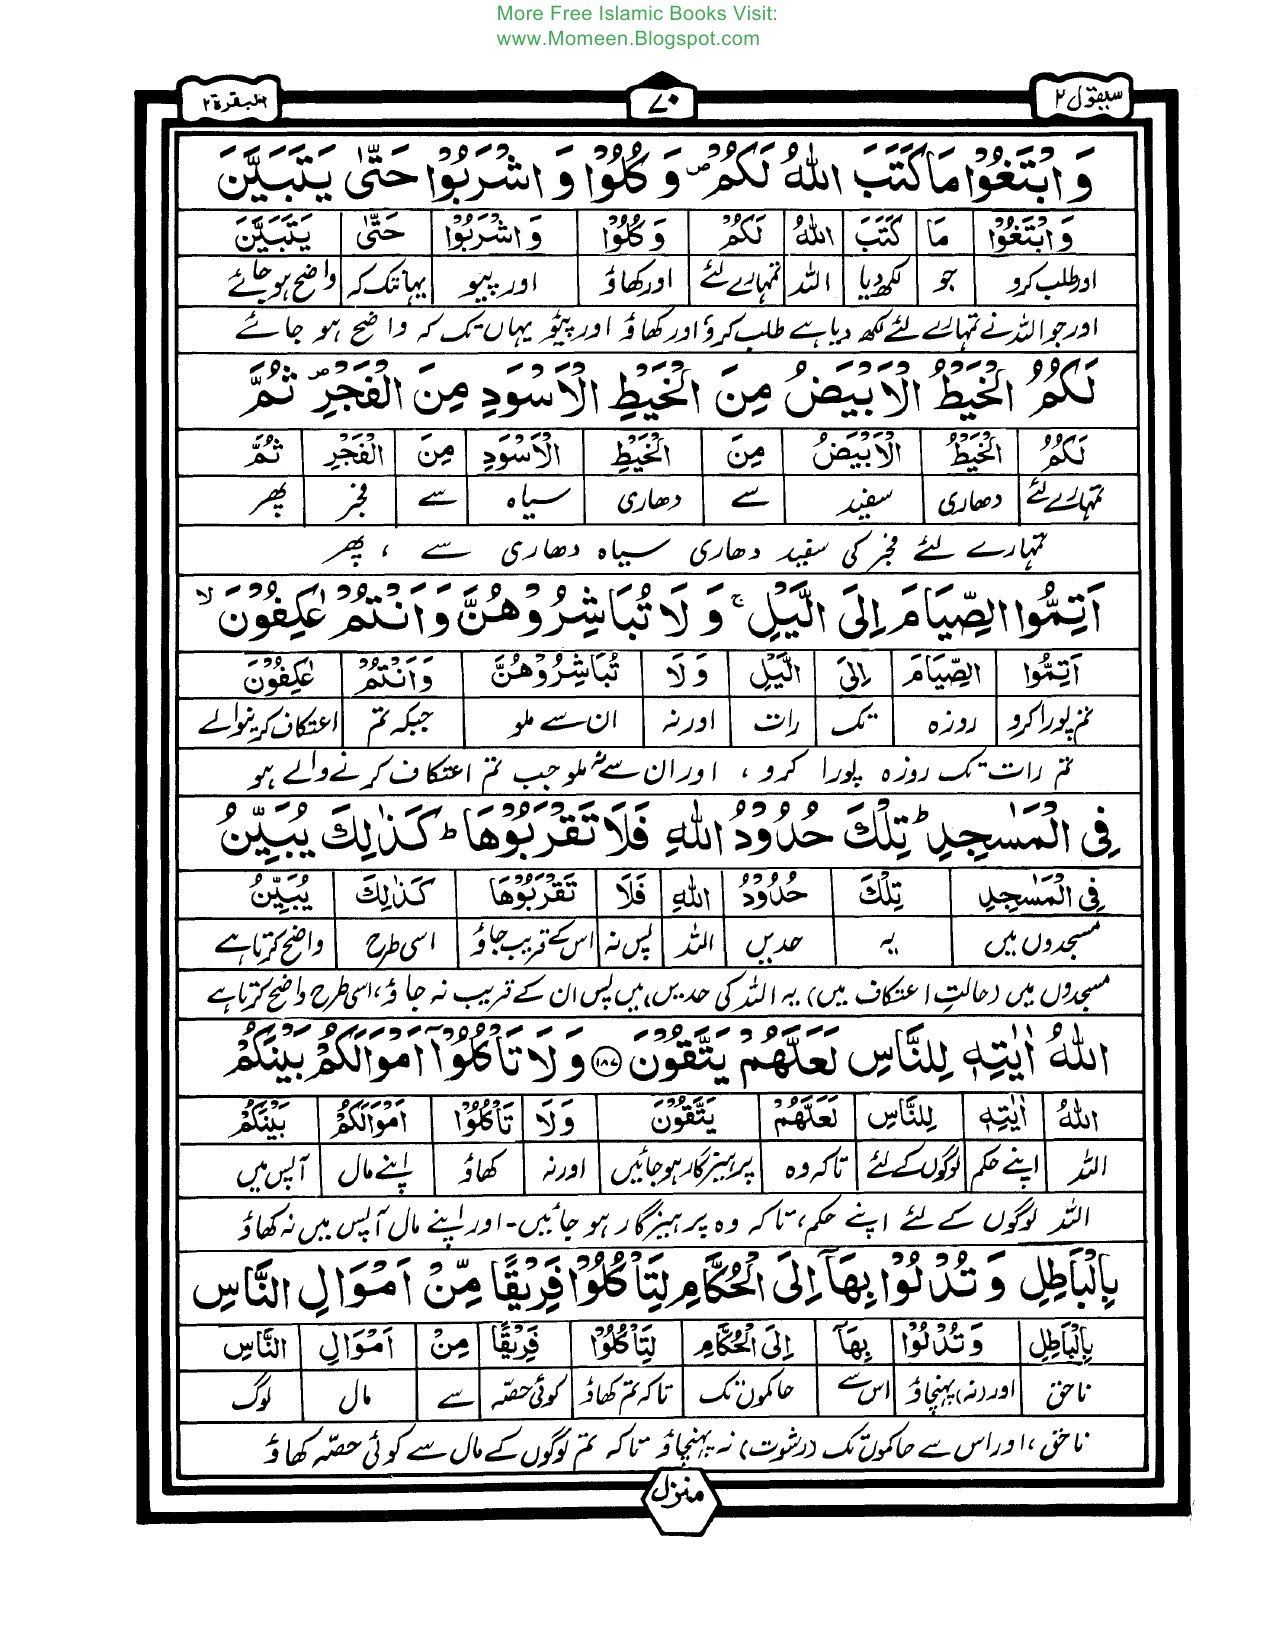 More Free Islamic Books Visit:
www.Momeen.Blogspot.com
سیقول ۲ ۷۰ البقرۃ ۲
وَ ابْتَغُوْا مَا كَتَبَ اللّٰهُ لَكُمْ ۪ وَ كُلُوْا وَ اشْرَبُوْا حَتّٰى یَتَبَیَّنَ
وَ ابْتَغُوْا مَا كَتَبَ اللّٰهُ لَكُمْ وَ كُلُوْا وَ اشْرَبُوْا حَتّٰى یَتَبَیَّنَ
اور طلب کرو جو لکھ دیا اللہ تمہارے لئے اور کھاؤ اور پیو یہانتک کہ واضح ہو جائے
اور جو اللہ نے تمہارے لئے لکھ دیا ہے طلب کرو، اور کھاؤ اور پیئو یہاں تک کہ واضح ہو جائے
لَكُمُ الْخَیْطُ الْاَبْیَضُ مِنَ الْخَیْطِ الْاَسْوَدِ مِنَ الْفَجْرِ ۪ ثُمَّ
لَكُمُ الْخَیْطُ الْاَبْیَضُ مِنَ الْخَیْطِ الْاَسْوَدِ مِنَ الْفَجْرِ ثُمَّ
تمہارے لئے دھاری سفید سے دھاری سیاہ سے فجر پھر
تمہارے لئے فجر کی سفید دھاری سیاہ دھاری سے ، پھر
اَتِمُّوا الصِّیَامَ اِلَى الَّیْلِ ۚ وَ لَا تُبَاشِرُوْهُنَّ وَ اَنْتُمْ عٰكِفُوْنَ ۙ
اَتِمُّوا الصِّیَامَ اِلَى الَّیْلِ وَ لَا تُبَاشِرُوْهُنَّ وَ اَنْتُمْ عٰكِفُوْنَ
تم پورا کرو روزہ تک رات اور نہ ان سے ملو جبکہ تم اعتکاف کرنیوالے
تم رات تک روزہ پورا کرو ، اور ان سے نہ ملو جب تم اعتکاف کرنے والے ہو
فِی الْمَسٰجِدِ ؕ تِلْكَ حُدُوْدُ اللّٰهِ فَلَا تَقْرَبُوْهَا ؕ كَذٰلِكَ یُبَیِّنُ
فِی الْمَسٰجِدِ تِلْكَ حُدُوْدُ اللّٰهِ فَلَا تَقْرَبُوْهَا كَذٰلِكَ یُبَیِّنُ
مسجدوں میں یہ حدیں اللہ پس نہ اس کے قریب جاؤ اسی طرح واضح کرتا ہے
مسجدوں میں (حالتِ اعتکاف میں) یہ اللہ کی حدیں ہیں پس ان کے قریب نہ جاؤ، اسی طرح واضح کرتا ہے
اللّٰهُ اٰیٰتِهٖ لِلنَّاسِ لَعَلَّهُمْ یَتَّقُوْنَ ۝۱۸۷ وَ لَا تَاْكُلُوْۤا اَمْوَالَكُمْ بَیْنَكُمْ
اللّٰهُ اٰیٰتِهٖ لِلنَّاسِ لَعَلَّهُمْ یَتَّقُوْنَ وَ لَا تَاْكُلُوْا اَمْوَالَكُمْ بَیْنَكُمْ
اللہ اپنے حکم لوگوں کے لئے تاکہ وہ پرہیزگار ہو جائیں اور نہ کھاؤ اپنے مال آپس میں
اللہ لوگوں کے لئے اپنے حکم، تاکہ وہ پرہیزگار ہو جائیں۔ اور اپنے مال آپس میں نہ کھاؤ
بِالْبَاطِلِ وَ تُدْلُوْا بِهَاۤ اِلَى الْحُكَّامِ لِتَاْكُلُوْا فَرِیْقًا مِّنْ اَمْوَالِ النَّاسِ
بِالْبَاطِلِ وَ تُدْلُوْا بِهَاۤ اِلَى الْحُكَّامِ لِتَاْكُلُوْا فَرِیْقًا مِنْ اَمْوَالِ النَّاسِ
ناحق اور (نہ) پہنچاؤ اس سے حاکموں تک تاکہ تم کھاؤ کوئی حصّہ سے مال لوگ
ناحق ، اور اس سے حاکموں تک (رشوت) نہ پہنچاؤ تاکہ تم لوگوں کے مال سے کوئی حصّہ کھاؤ
منزل